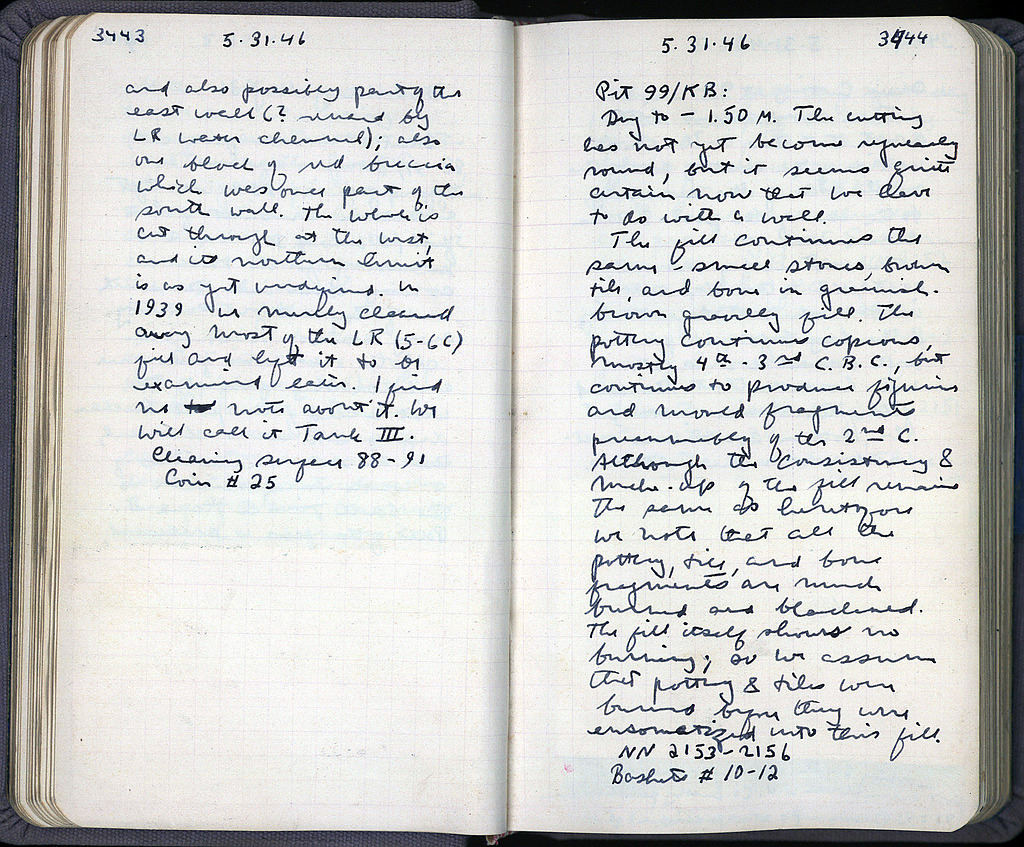 3443
5.31.46
and also possibly part of the
east wall (? reused by
LR water channel); also
one block of red breccia
which was once part of the
south wall. The whole is
cut through at the west,
and its northern limit
is as yet undefined. In
1939 we merely cleared
away most of the LR (5-6 C)
fill and left it to be
examined later. I find
no note about it. We
will call it Tank III.
Cleaning surface 88-91
Coin # 25
5.31.46
3444
Pit 99/KB:
Dug to - 1.50 M. The cutting
has not yet become regularly
round, but it seems quite
certain now that we have
to do with a well.
The fill continues the
same - small stones, broken
tile, and bone in greenish-
brown gravelly fill. The
pottery continues copious,
mostly 4th - 3rd C. B.C., but
continues to produce figurine
and mould fragments
presumably of the 2nd C.
Although the consistency &
make-up of the fill remains
the same as heretofore
we note that all the
pottery, tile, and bone
fragments are much
burned and blackened.
The fill itself shows no
burning; so we assume
that pottery & tiles were
burned before they were
into this fill.
NN 2153-2156
Baskets # 10-12